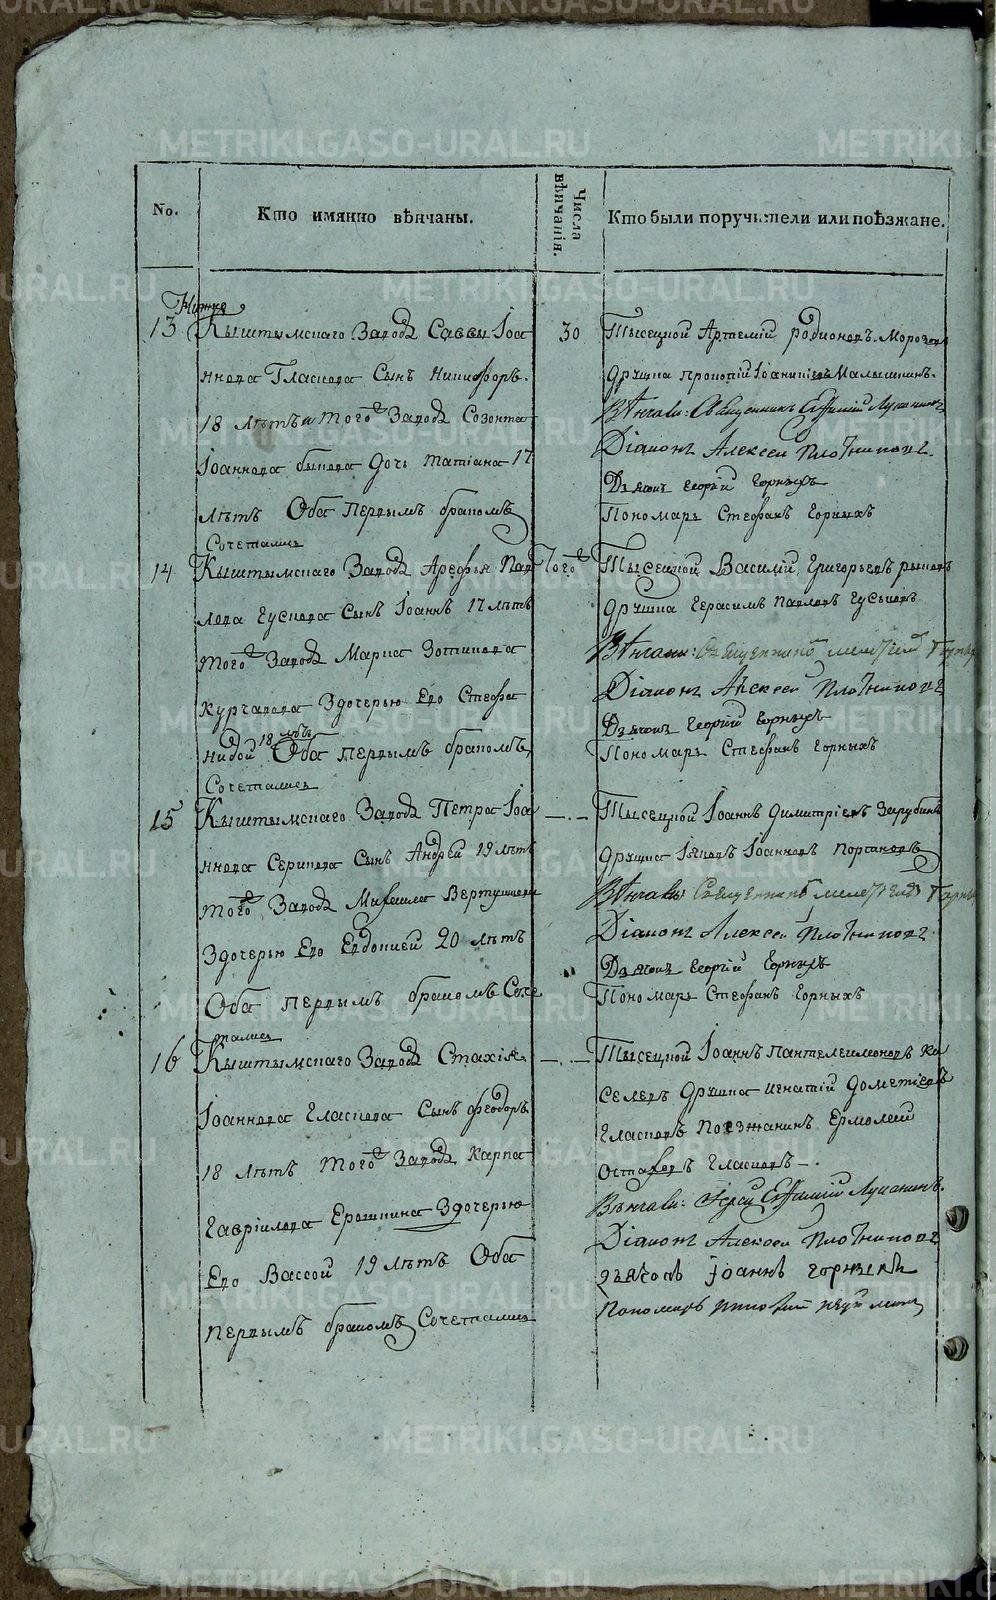 METRIKI.GASO-URAL.RU
No.
Кто имянно вѣнчаны.
Числа вѣнчанія.
Кто были поручители или поѣзжане.
13
Нижне
Кыштымскаго Завода Саввы Іоа
ннова Гласкова Сынъ Никифоръ.
18 лѣтъ и того Завода Созонта
Іоаннова быкова дочь татіана 17
лѣтъ Оба первымъ бракомъ
Сочетались
30
Тысецкой Артемій родионовъ Морозовъ
дружка прокопій Іоаникіевъ Малышкинъ.
Вѣнчали: Священникъ Евфимій Луканинъ
Діаконъ Алексей Плотниковъ.
Дьячекъ георгій горныхъ
Пономарь Стефанъ горныхъ
14
Кыштымскаго Завода Арефья Пав
лова гускова Сынъ Іоаннъ 17 лѣтъ
того Завода Марка Зотикова
курчавова Здочерью Его Стефа
нидой 18 лѣтъ Оба первымъ бракомъ
Сочетались
Того
Тысецкой Василій григорьевъ рыковъ
дружка герасимъ павловъ гуськовъ
Вѣнчали: Священникъ мелетій
Діаконъ Алексей Плотниковъ
Дьячекъ георгій горныхъ
Пономарь Стефанъ горныхъ
15
Кыштымскаго Завода Петра Іоа
ннова Серикова Сынъ Андрей 19 лѣтъ
того Завода Михаила Вертушкова
Здочерью Его Евдокией 20 лѣтъ
Оба первымъ бракомъ Соче
тались
—.—
Тысецкой Іоаннъ димитріевъ Зарубинъ
дружка Іяковъ Іоанновъ
Вѣнчали: Священникъ мелетій
Діаконъ Алексей Плотниковъ
Дьячекъ георгій горныхъ
Пономарь Стефанъ горныхъ
16
Кыштымскаго Завода Стахія
Іоаннова гласкова Сынъ феодоръ.
18 лѣтъ того Завода Карпа
гавріилова Ерошкина Здочерью
Его Вассой 19 лѣтъ Оба
первымъ бракомъ Сочетались
—.—
Тысецкой Іоаннъ пантелеимоновъ Ки
селевъ дружка игнатій дометіевъ
гласковъ Поезжанинъ Ермолай
гласковъ —.
Вѣнчали: Іерей Евфимій Луканинъ.
Діаконъ Алексей Плотниковъ
дьячокъ Іоаннъ
пономарь